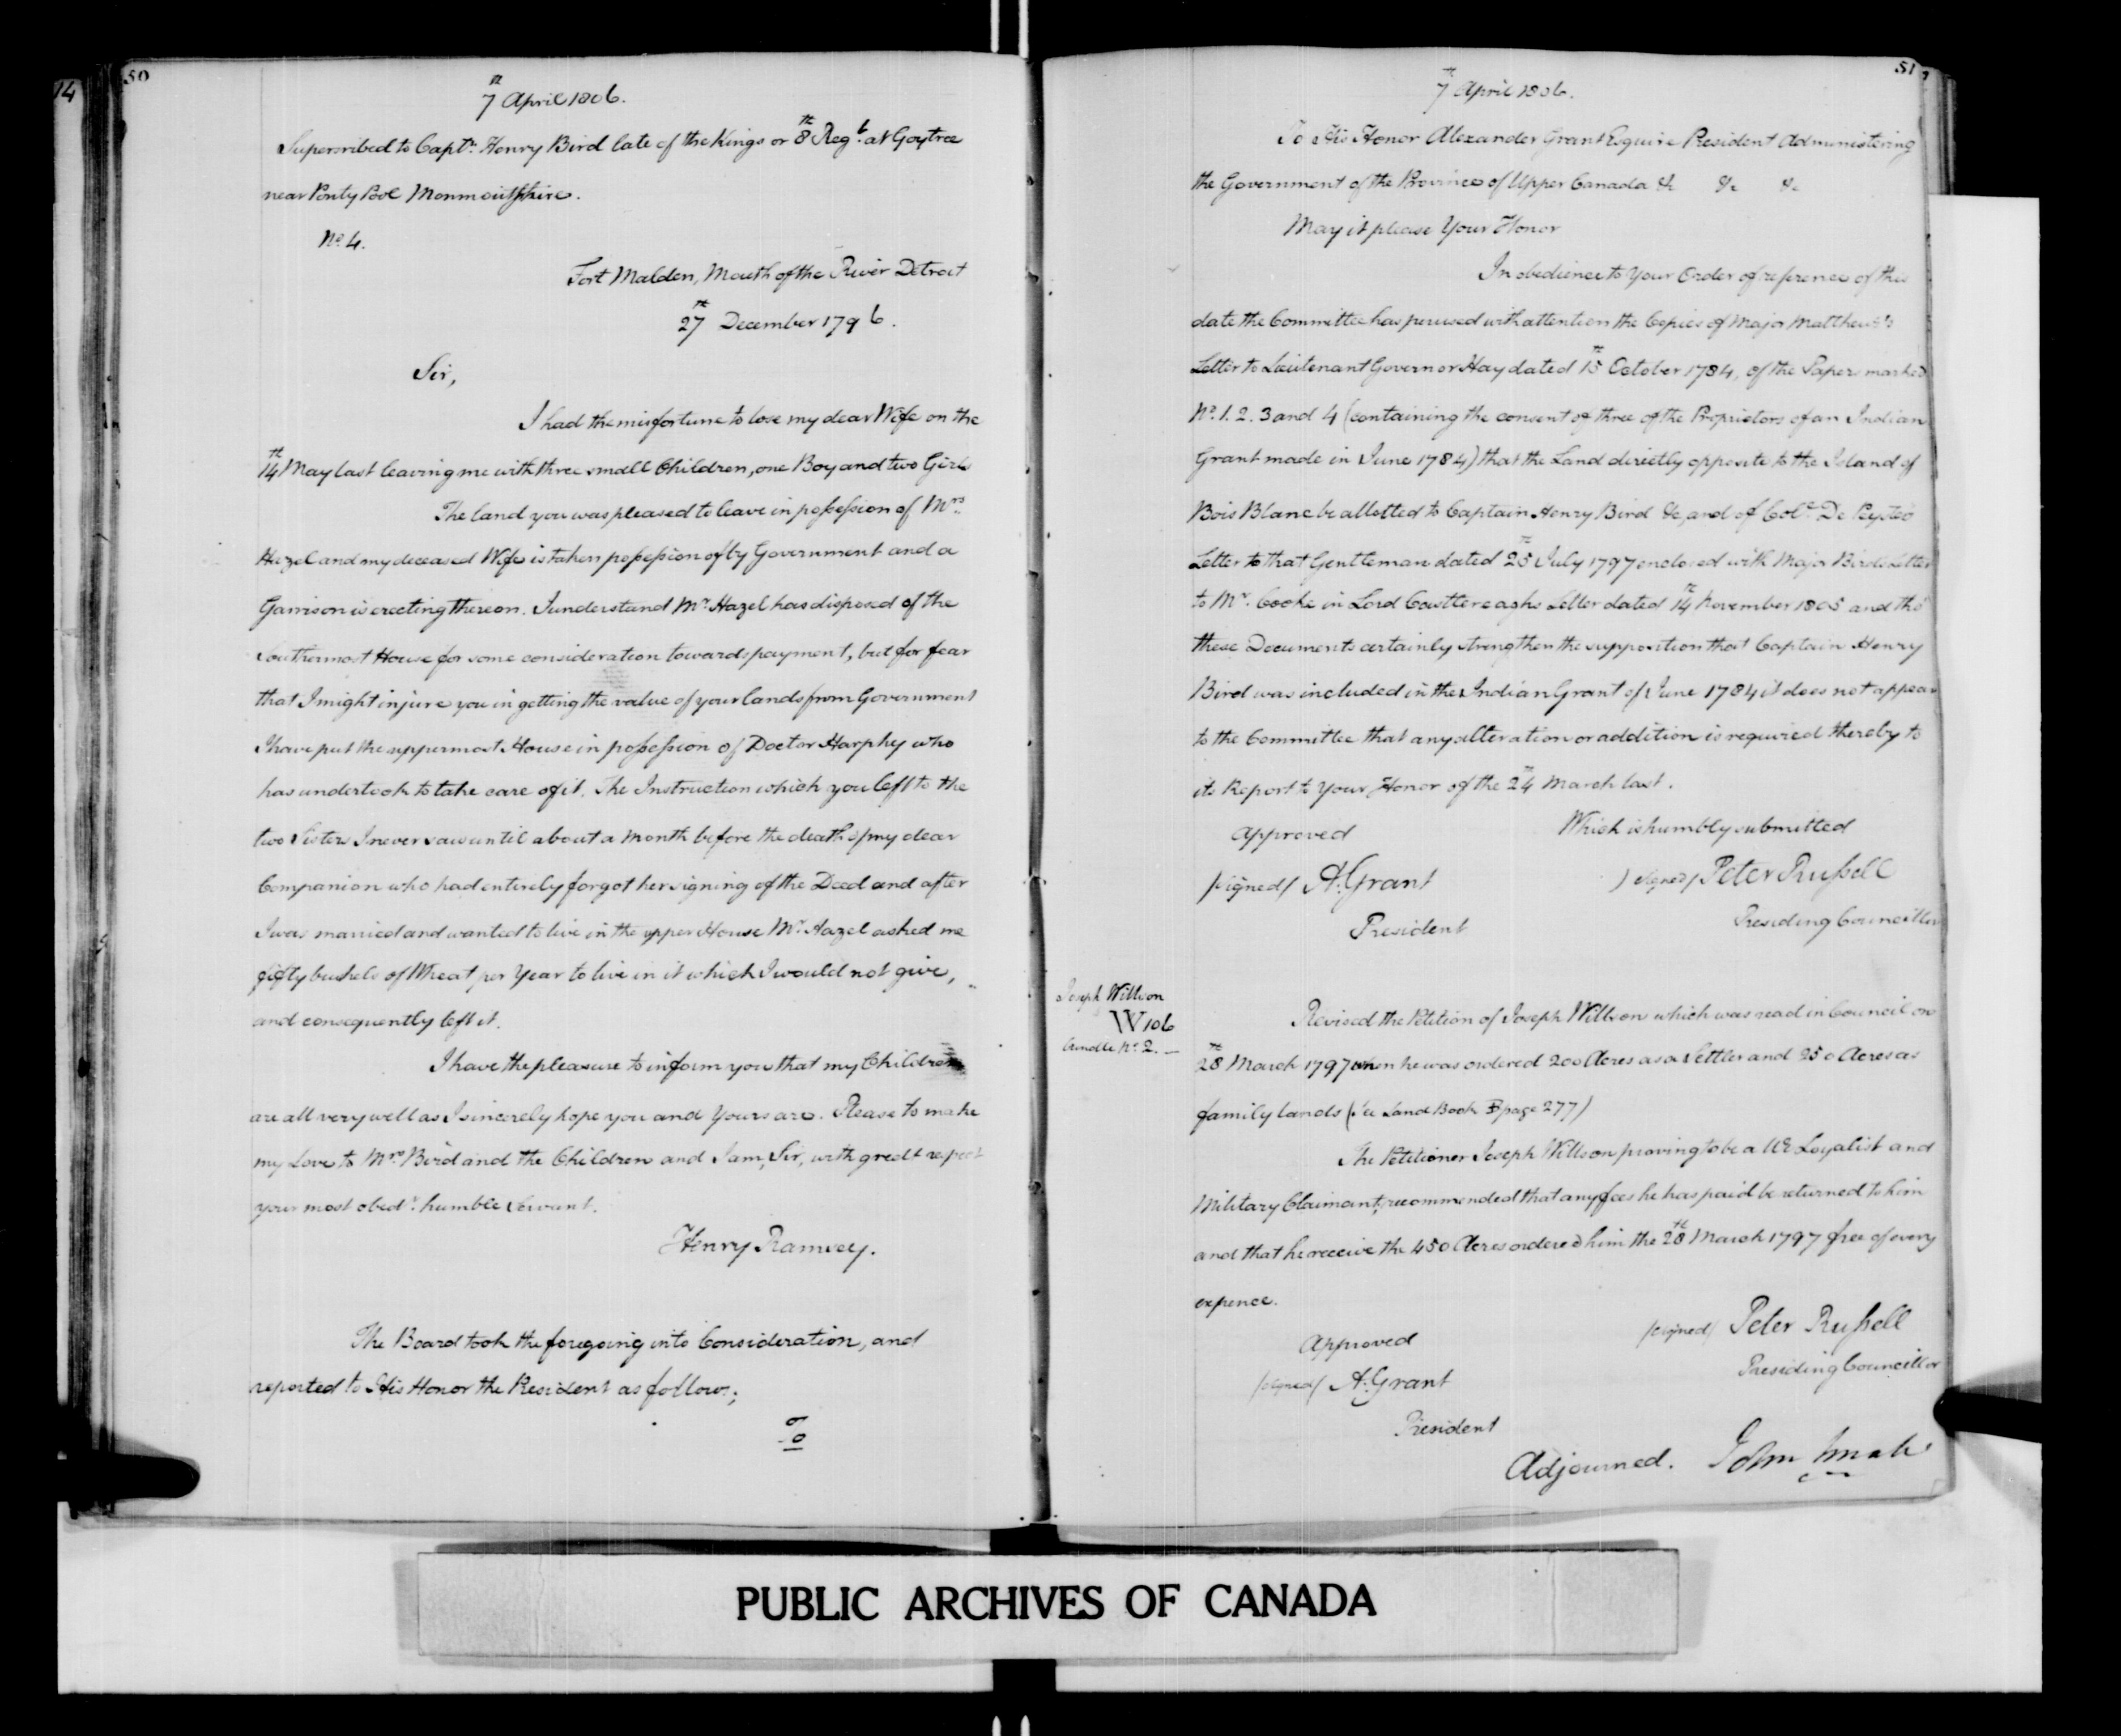 14
50
7th April 1806.
Superscribed to Captn. Henry Bird late of the Kings or 8th Regt. at Goytree
near Ponty Pool Monmouthshire.
No. 4.
Fort Malden, Mouth of the River Detroit
27th December 1796.
Sir,
I had the misfortune to lose my dear Wife on the
14th May last leaving me with three small Children, one Boy and two Girls
The land you was pleased to leave in possession of Mrs.
Hazel and my deceased Wife is taken possession of by Government and a
Garrison is erecting thereon. I understand Mr. Hazel has disposed of the
Southermost House for some consideration towards payment, but for fear
that I might injure you in getting the value of your lands from Government
I have put the uppermost House in possession of Doctor Harphey who
has undertook to take care of it. The Instruction which you left to the
two Sisters I never saw until about a Month before the death of my dear
Companion who had entirely forgot her signing of the Deed and after
I was married and wanted to live in the upper House Mr. Hazel asked me
fifty bushels of Wheat per Year to live in it which I would not give,
and consequently left it.
I have the pleasure to inform you that my Children
are all very well as I sincerely hope you and Yours are. Please to make
my Love to Mrs. Bird and the Children and I am, Sir, with great respect
your most obedt. humble Servant.
Henry Ramsey.
The Board took the foregoing into Consideration, and
reported to His Honor the President as follows;
To
51
7th April 1806.
To His Honor Alexander Grant Esquire President Administering
the Government of the Province of Upper Canada &c &c &c
May it please Your Honor
In obedience to Your Order of reference of this
date the Committee has perused with attention the Copies of Major Matthews's
Letter to Lieutenant Governor Hay dated 15th October 1784, of the Papers marked
No. 1. 2. 3 and 4 (containing the consent of three of the Proprietors of an Indian
Grant made in June 1784) that the Land directly opposite to the Island of
Bois Blanc be allotted to Captain Henry Bird &c, and of Coll. De Peyster's
Letter to that Gentleman dated 25th July 1797 enclosed with Major Birds Letter
to Mr. Cooke in Lord Castlereaghs Letter dated 14th November 1805 and tho'
these Documents certainly strengthen the supposition that Captain Henry
Bird was included in the Indian Grant of June 1784 it does not appear
to the Committee that any alteration or addition is required thereby to
its Report to Your Honor of the 24th March last.
Approved
Which is humbly submitted
/signed/ A. Grant
/signed/ Peter Russell
President
Presiding Councillor
Joseph Willson
W 106
Bundle No. 2. —
Revised the Petition of Joseph Willson which was read in Council on
28th March 1797 when he was ordered 200 Acres as a Settler and 250 Acres as
family lands (See Land Book B page 277)
The Petitioner Joseph Willson proving to be a UE Loyalist and
Military Claimant, recommended that any fees he has paid be returned to him
and that he receive the 450 Acres ordered him the 28th March 1797 free of every
expence.
/signed/ Peter Russell
Approved
Presiding Councillor
/signed/ A. Grant
President
Adjourned. John Small
PUBLIC ARCHIVES OF CANADA